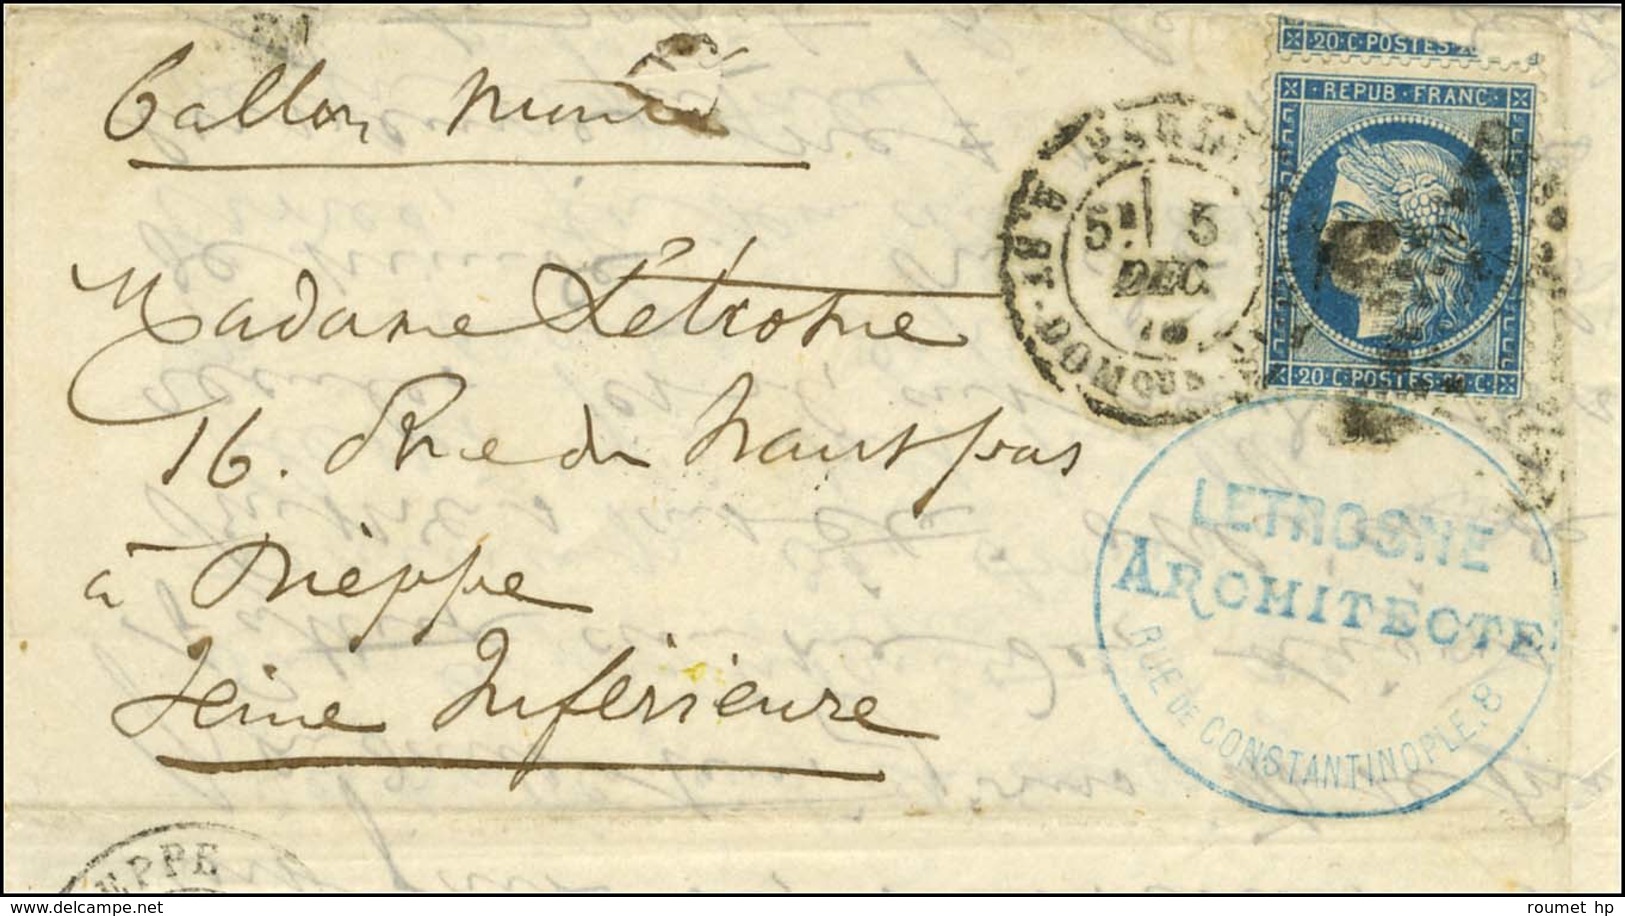 Ballon Monté
20·C·POSTES·20
·REPUB·FRANC·
PARIS
5E 5
DEC.
70
R. ST. DOMQUE
20·C·POSTES·20·C
Madame Létrosne
16. Rue du haut pas
à Dieppe
Seine Inférieure
LETROSNE
ARCHITECTE
RUE DE CONSTANTINOPLE.8
EPPE
roumet hp